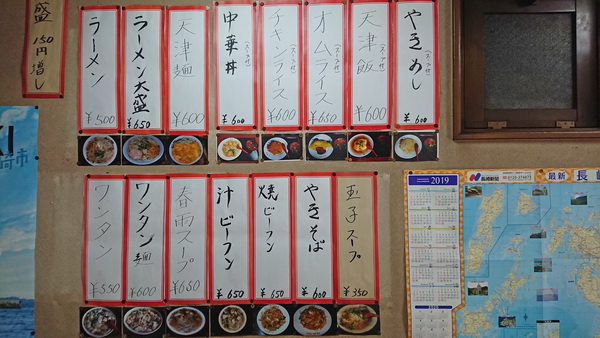 やきめし(スープ付)
¥600
天津飯(スープ付)
¥600
オムライス(スープ付)
¥650
チキンライス(スープ付)
¥600
中華丼
¥600
天津麺
¥600
ラーメン大盛
¥650
ラーメン
¥500
盛 150円増し
玉子スープ
¥350
やきそば
¥600
焼ビーフン
¥650
汁ビーフン
¥650
春雨スープ
¥650
ワンタン麺
¥600
ワンタン
¥550
崎市
2019
長崎新聞
最新 長